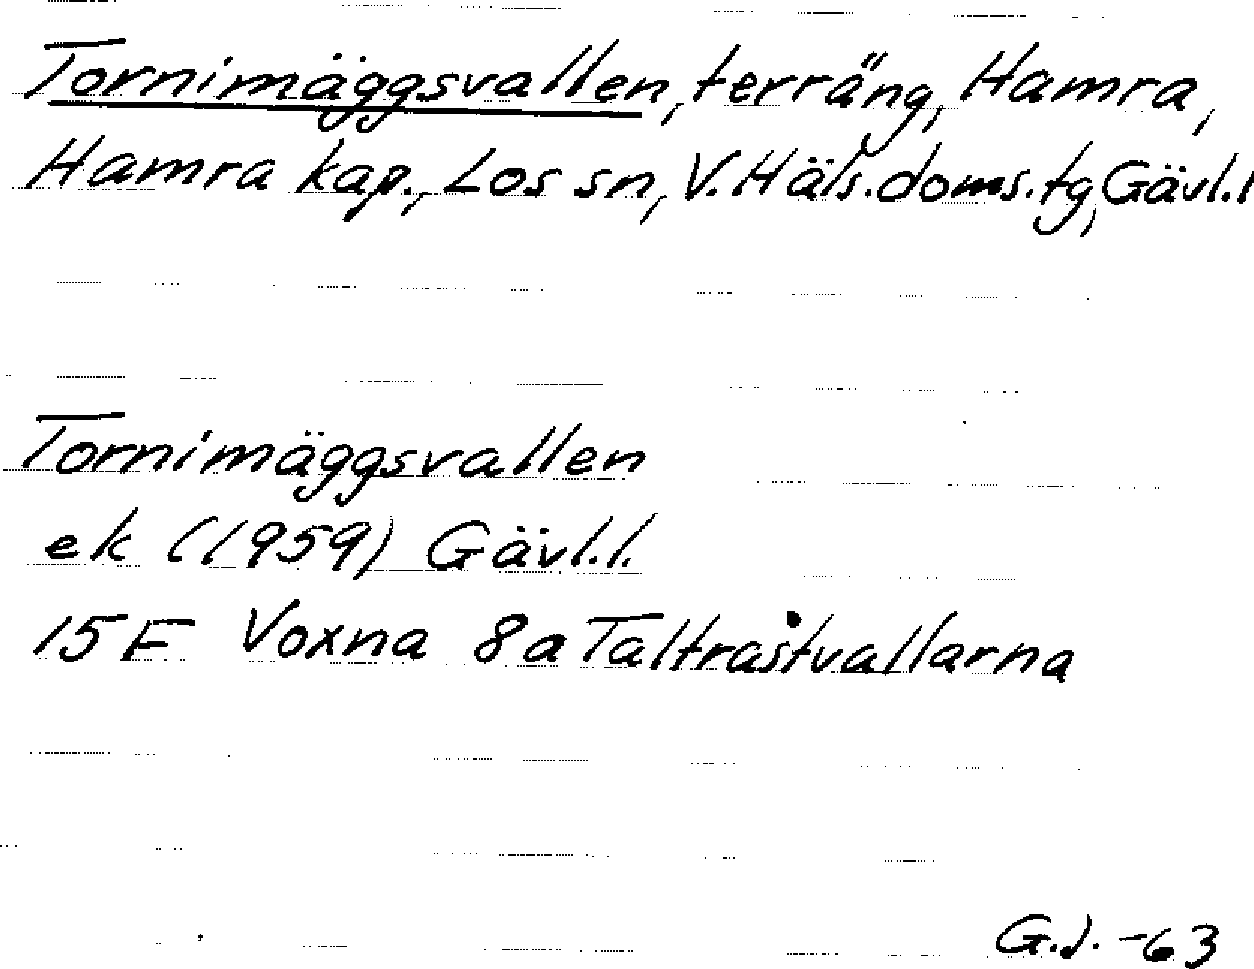 Tornimäggsvallen, terräng, Hamra,
Hamra kap., Los sn, V. Häls. doms. tg, Gävl.l
Tornimäggsvallen
ek (1959) Gävl.l.
15 F Voxna 8a Taltråstvallarna
G.J. -63